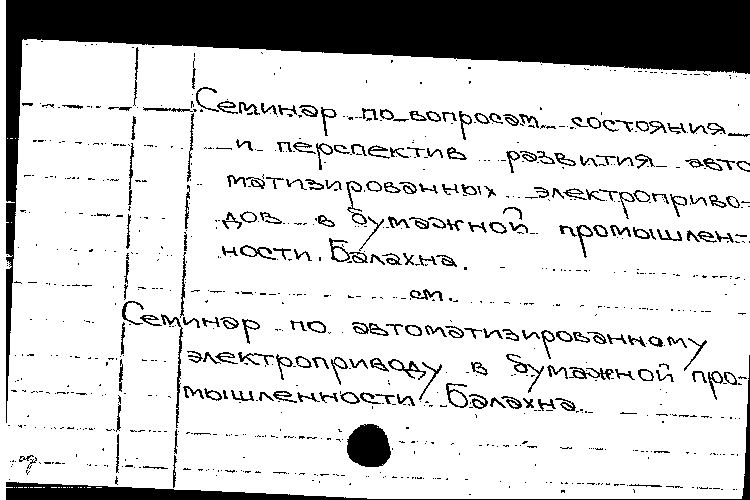 Семинар по вопросам состояния
и перспектив развития авто
матизированных электроприво-
дов в бумажной промышлен-
ности. Балахна.
см.
Семинар по автоматизированному
электроприводу в бумажной про-
мышленности. Балахна.